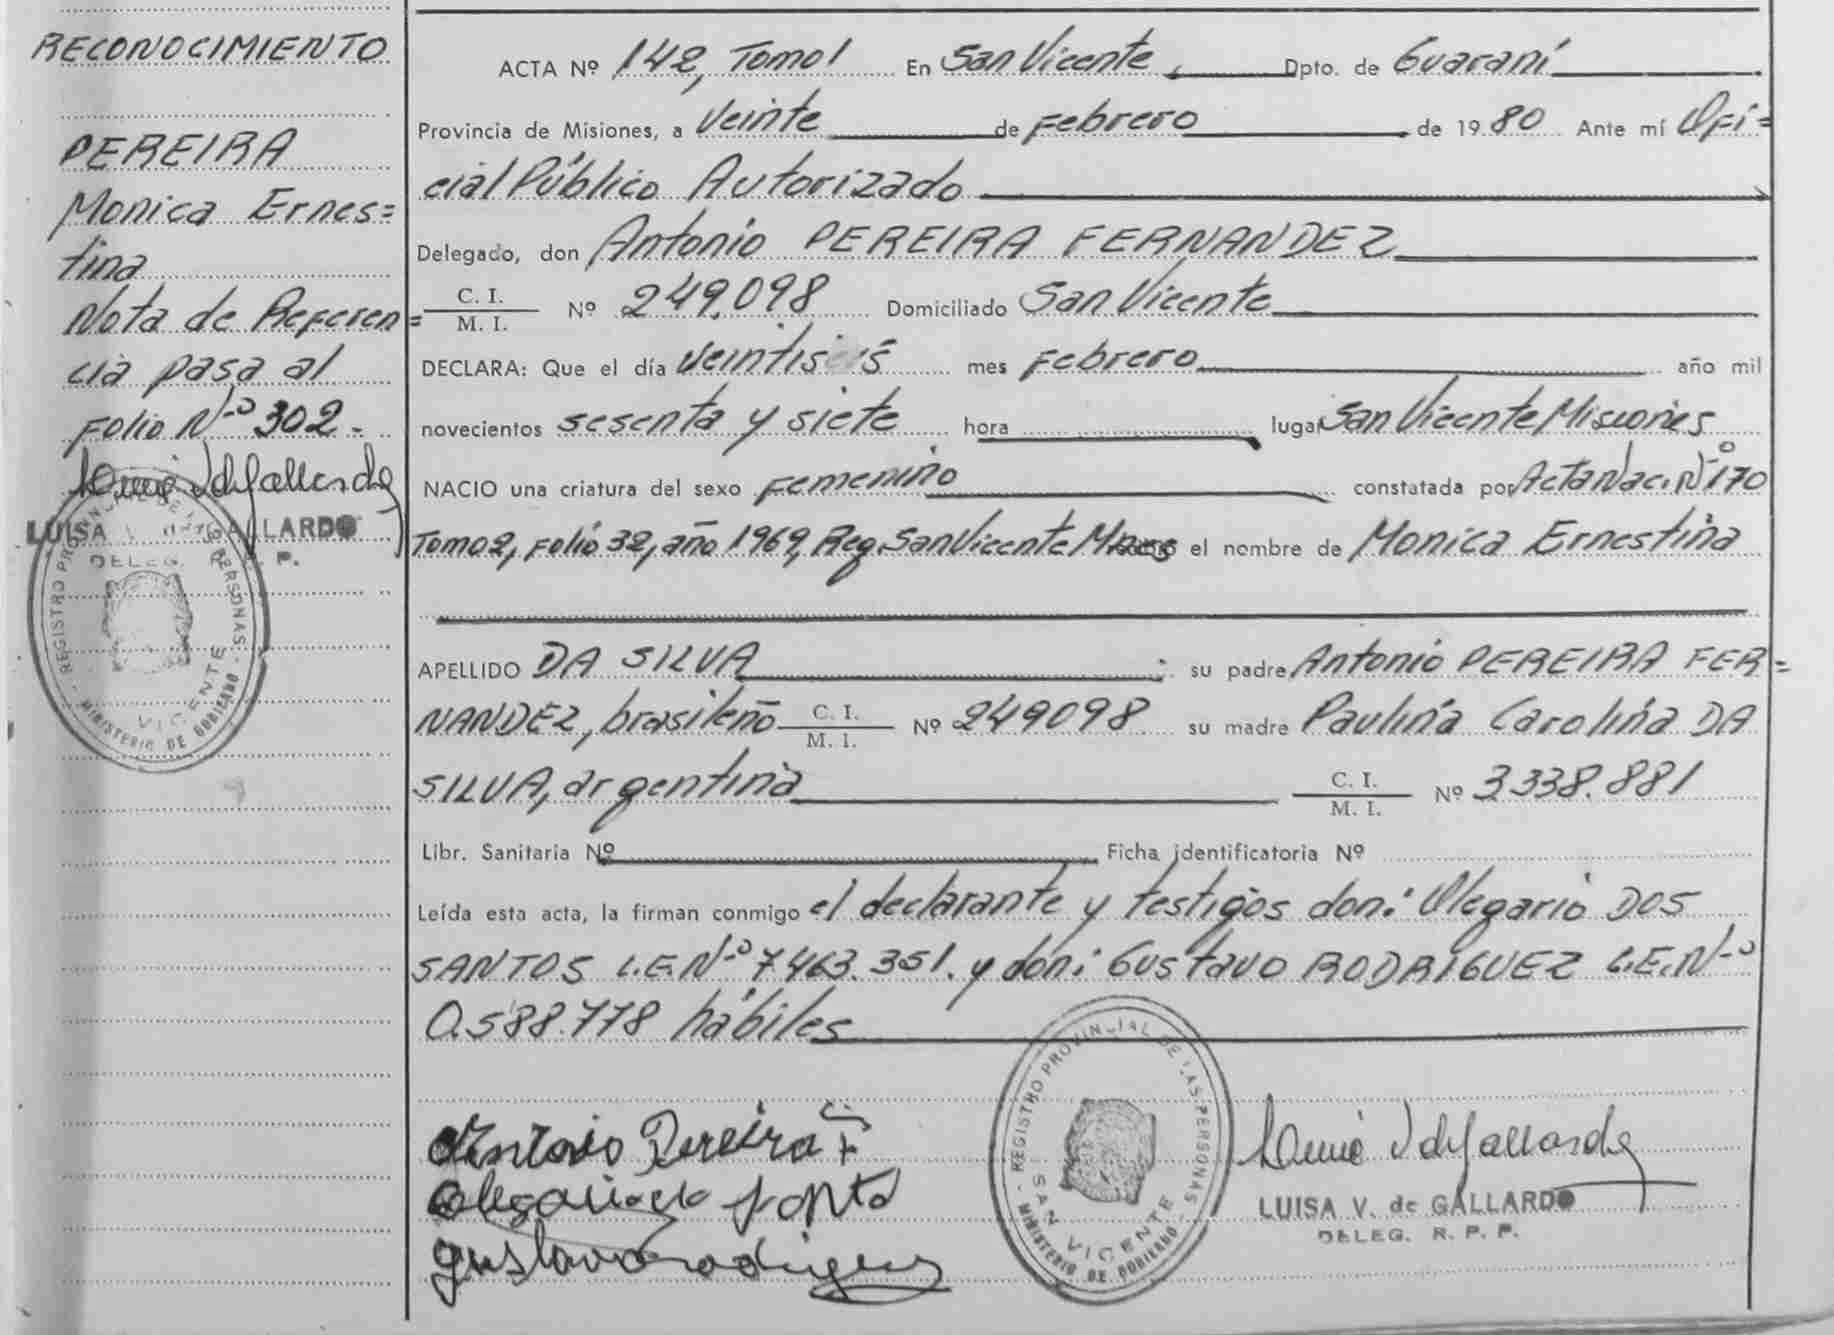 RECONOCIMIENTO
PEREIRA
Monica Ernes=
tina
Nota de Referen=
cia pasa al
Folio N-º 302-
LUISA V. de GALLARDO
DELEG. R. P. P.
REGISTRO PROVINCIAL DE LAS PERSONAS
SAN VICENTE
MINISTERIO DE GOBIERNO
ACTA Nº 142, Tomo 1 En San Vicente, Dpto. de Guaraní
Provincia de Misiones, a Veinte de Febrero de 1980 Ante mí Ofi=
cial Público Autorizado
Delegado, don Antonio PEREIRA FERNANDEZ
C. I.
M. I. Nº 249.098 Domiciliado San Vicente
DECLARA: Que el día Veintiseis mes Febrero año mil
novecientos sesenta y siete hora lugar San Vicente Misiones
NACIO una criatura del sexo Femenino constatada por Acta Nac. Nº 170
Tomo 2, Folio 32, año 1969, Reg. San Vicente Mnes el nombre de Monica Ernestina
APELLIDO DA SILVA su padre Antonio PEREIRA FER=
NANDEZ, brasileño C. I.
M. I. Nº 249098 su madre Paulina Carolina DA
SILVA, argentina C. I.
M. I. Nº 3.338.881
Libr. Sanitaria Nº Ficha identificatoria Nº
Leída esta acta, la firman conmigo el declarante y testigos don: Olegario DOS
SANTOS L.E.N-º 7.463.351. y don: Gustavo RODRIGUEZ L.E.N-º
0.588.778 hábiles
Antonio Pereira F
gustavo rodriguez
REGISTRO PROVINCIAL DE LAS PERSONAS
SAN VICENTE
MINISTERIO DE GOBIERNO
LUISA V. de GALLARDO
DELEG. R. P. P.